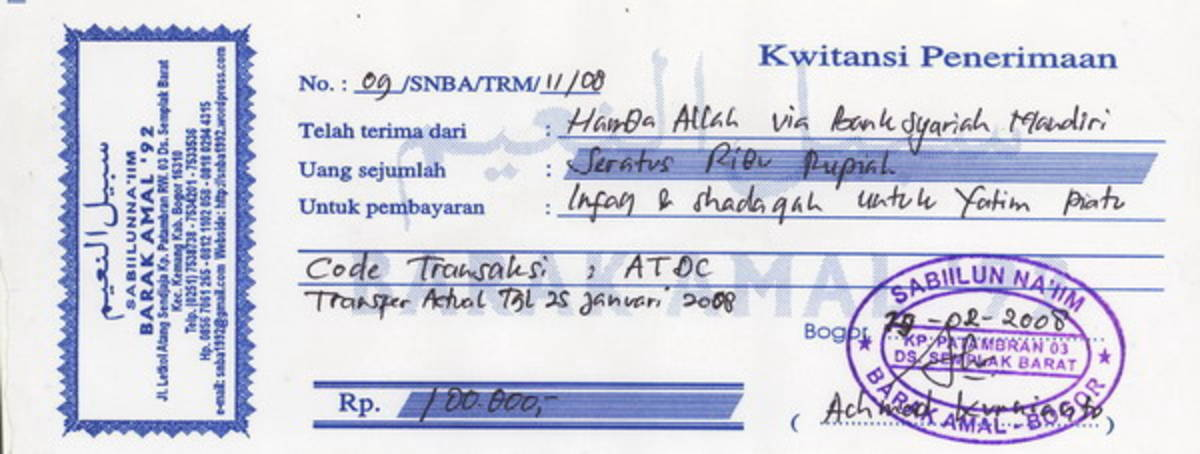 سبيل النعيم
SABIILUNNA'IIM
BARAK AMAL '92
Jl. Letkol Atang Sendjaja Kp. Patambran RW. 03 Ds. Semplak Barat
Kec. Kemang Kab. Bogor 16310
Telp. (0251) 7538738 - 7534201 - 7533536
Hp. 0856 7061 265 - 0812 1102 058 - 0818 0294 4315
e-mail: snba1992@gmail.com Webside: http://snba1992.wordpress.com
Kwitansi Penerimaan
No. : 09 /SNBA/TRM/ 11/08
Telah terima dari : Hamba Allah via Bank Syariah Mandiri
Uang sejumlah : Seratus Ribu Rupiah
Untuk pembayaran : Infaq & shadaqah untuk Yatim piatu
Code Transaksi : ATDC
Transfer Actual Tgl 25 Januari 2008
سبيل النعيم
BARAK AMAL '92
Bogor, -02-2008
SABIILUN NA'IIM
KP. PATAMBRAN 03
DS. SEMPLAK BARAT
BARAK AMAL - BOGOR
Rp. 100.000,-
( Achmad )